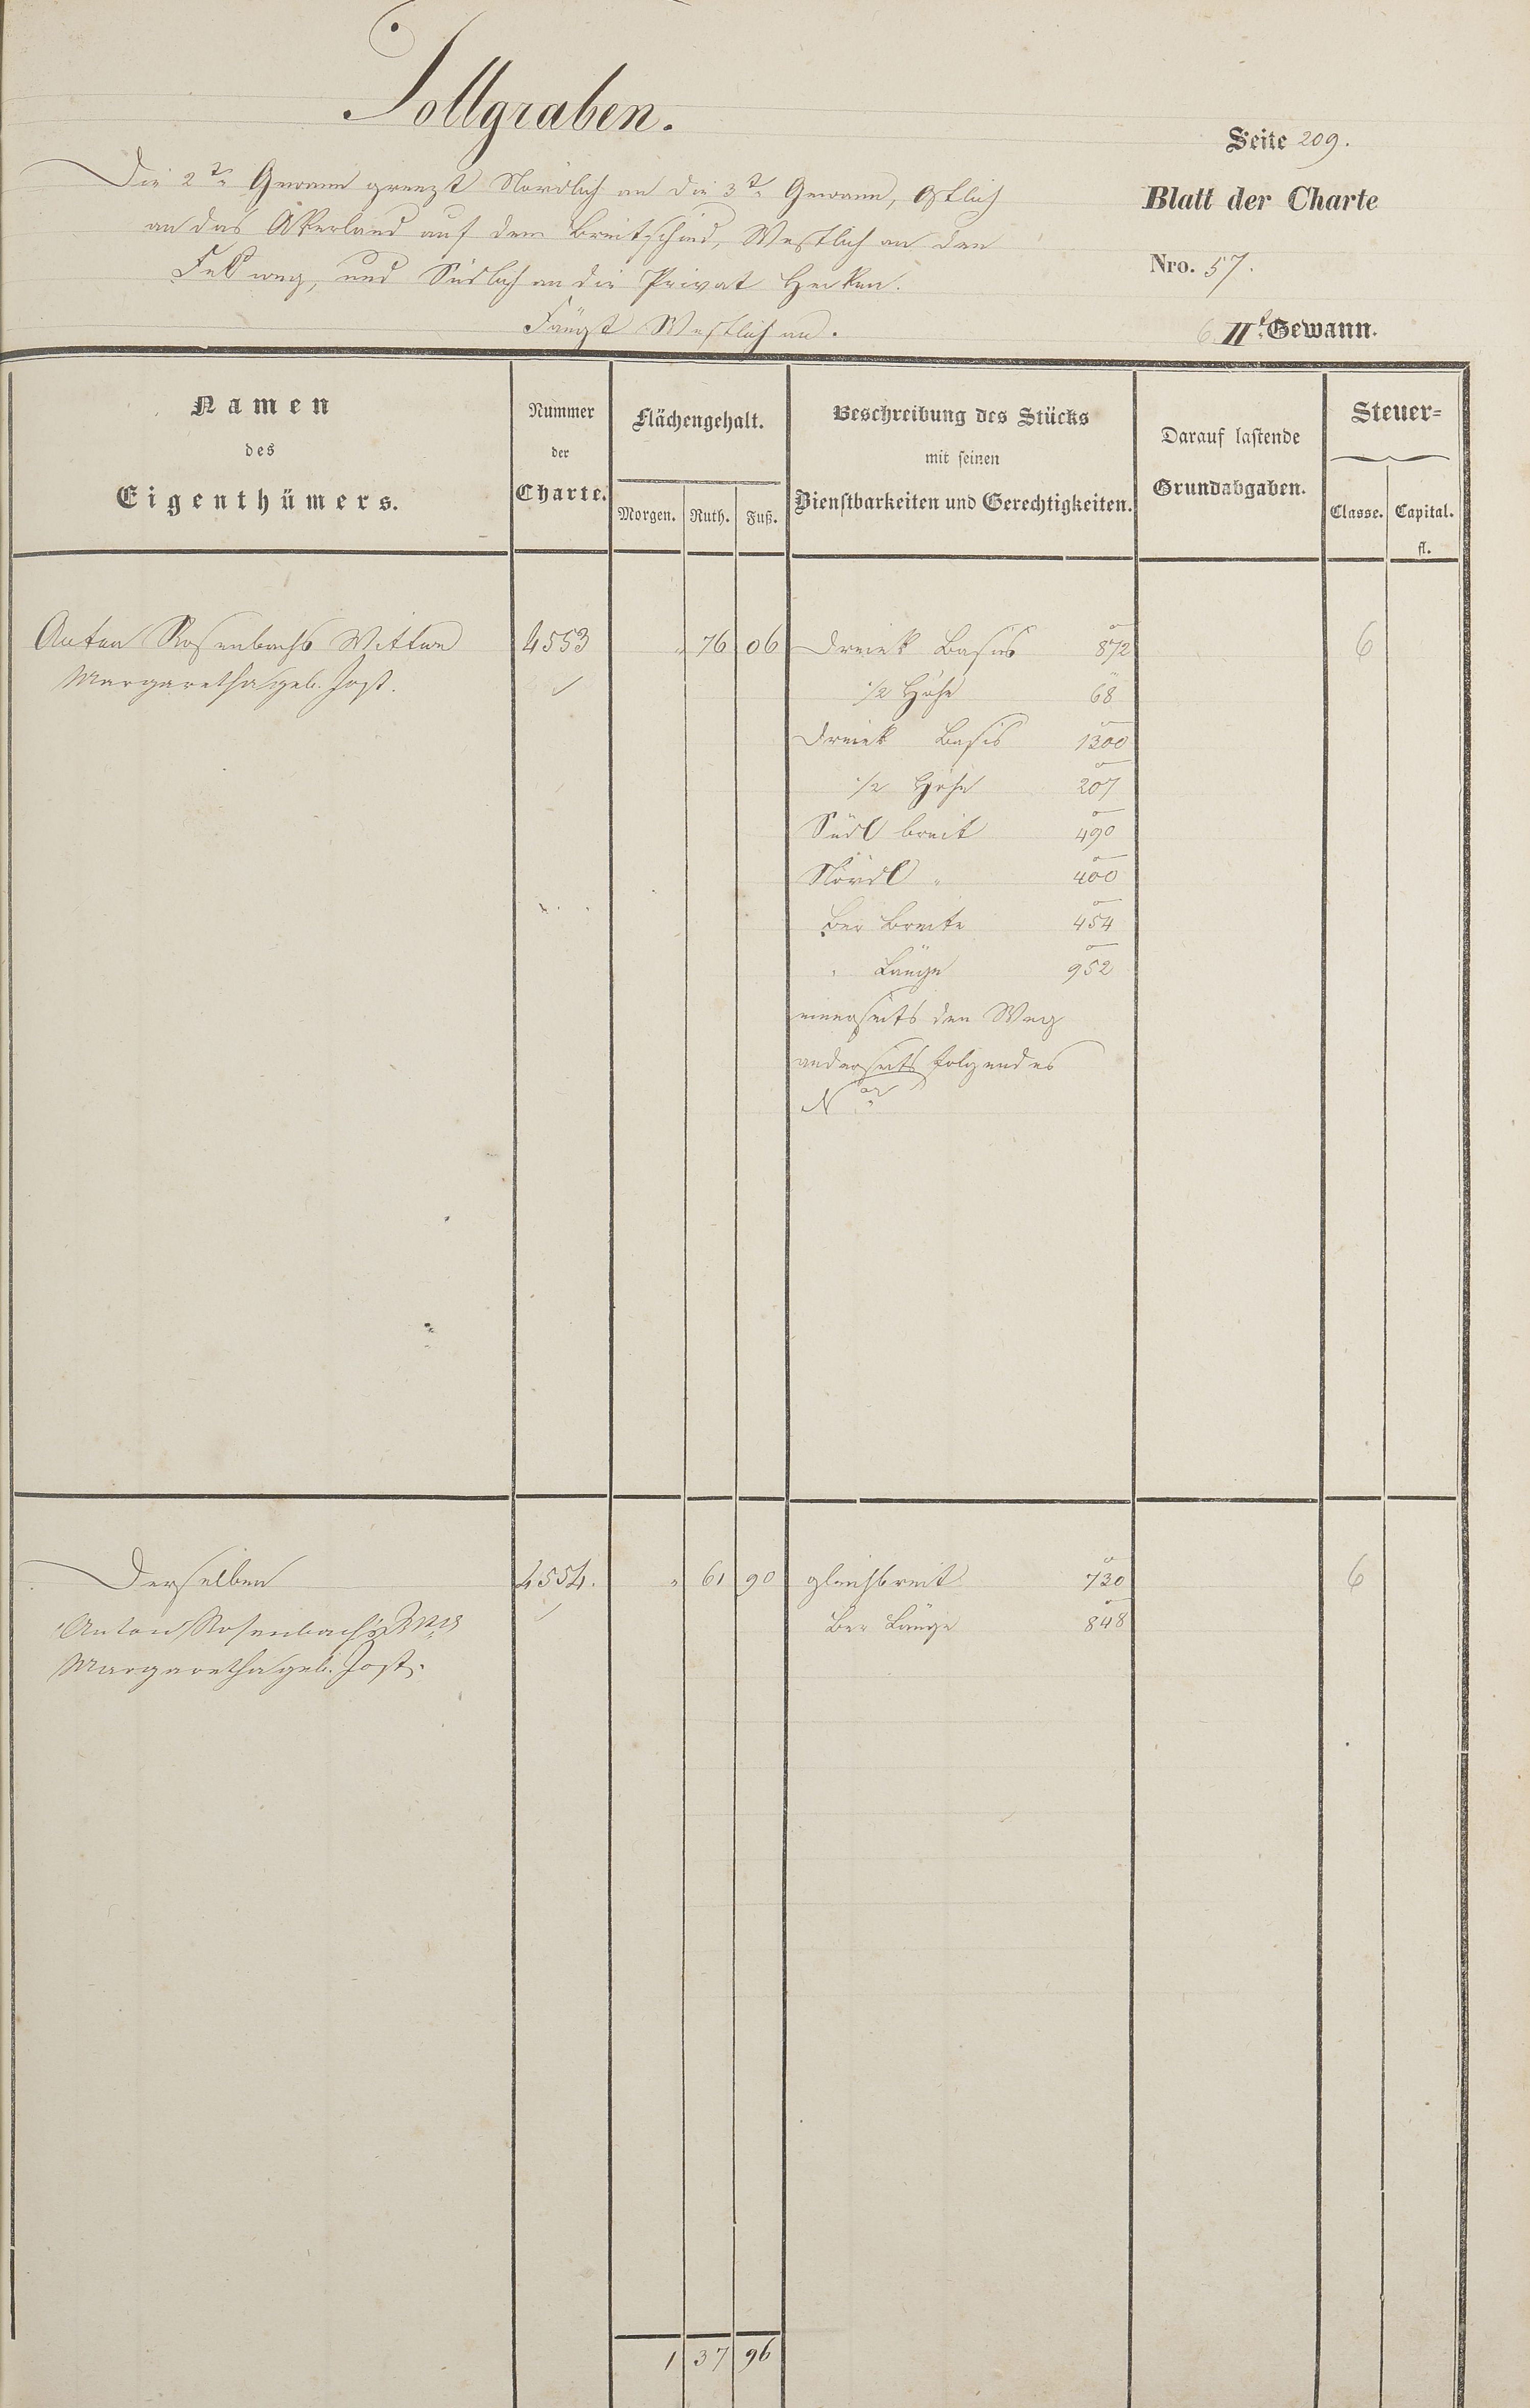 Tollgraben.
Seite 209.
Die 2te Gewann grenzt Nördlich an die 3te Gewann, Ostlich
an das Akerland auf dem Breitschied, Westlich an den
Feldweg, und Südlich an die Privat Hecken.
Fängt Westlich an.
Blatt der Charte
Nro. 57.
6 IIt Gewann.
Namen
des
Eigenthümers.
Nummer
der
Charte.
Flächengehalt.
Morgen. Ruth. Fuß.
Beschreibung des Stücks
mit seinen
Dienstbarkeiten und Gerechtigkeiten.
Darauf lastende
Grundabgaben.
Steuer-
Classe. Capital.
fl.
Anton Rosenbachs Wittwe 4553 " 76 06 Dreiek Basis 872 6
Margaretha geb. Jost. ½ Höhe 68
Dreiek Basis 1300
½ Höhe 207
Südl breit 490
Nördl " 400
Ber Breite 454
" Länge 952
einerseits den Weg
anderseits folgendes
Nor
Derselben 4554. " 61 90 gleichbreit 730 6
Anton Rosenbachs Ber Länge 848
Margaretha geb. Jost.
1 37 96